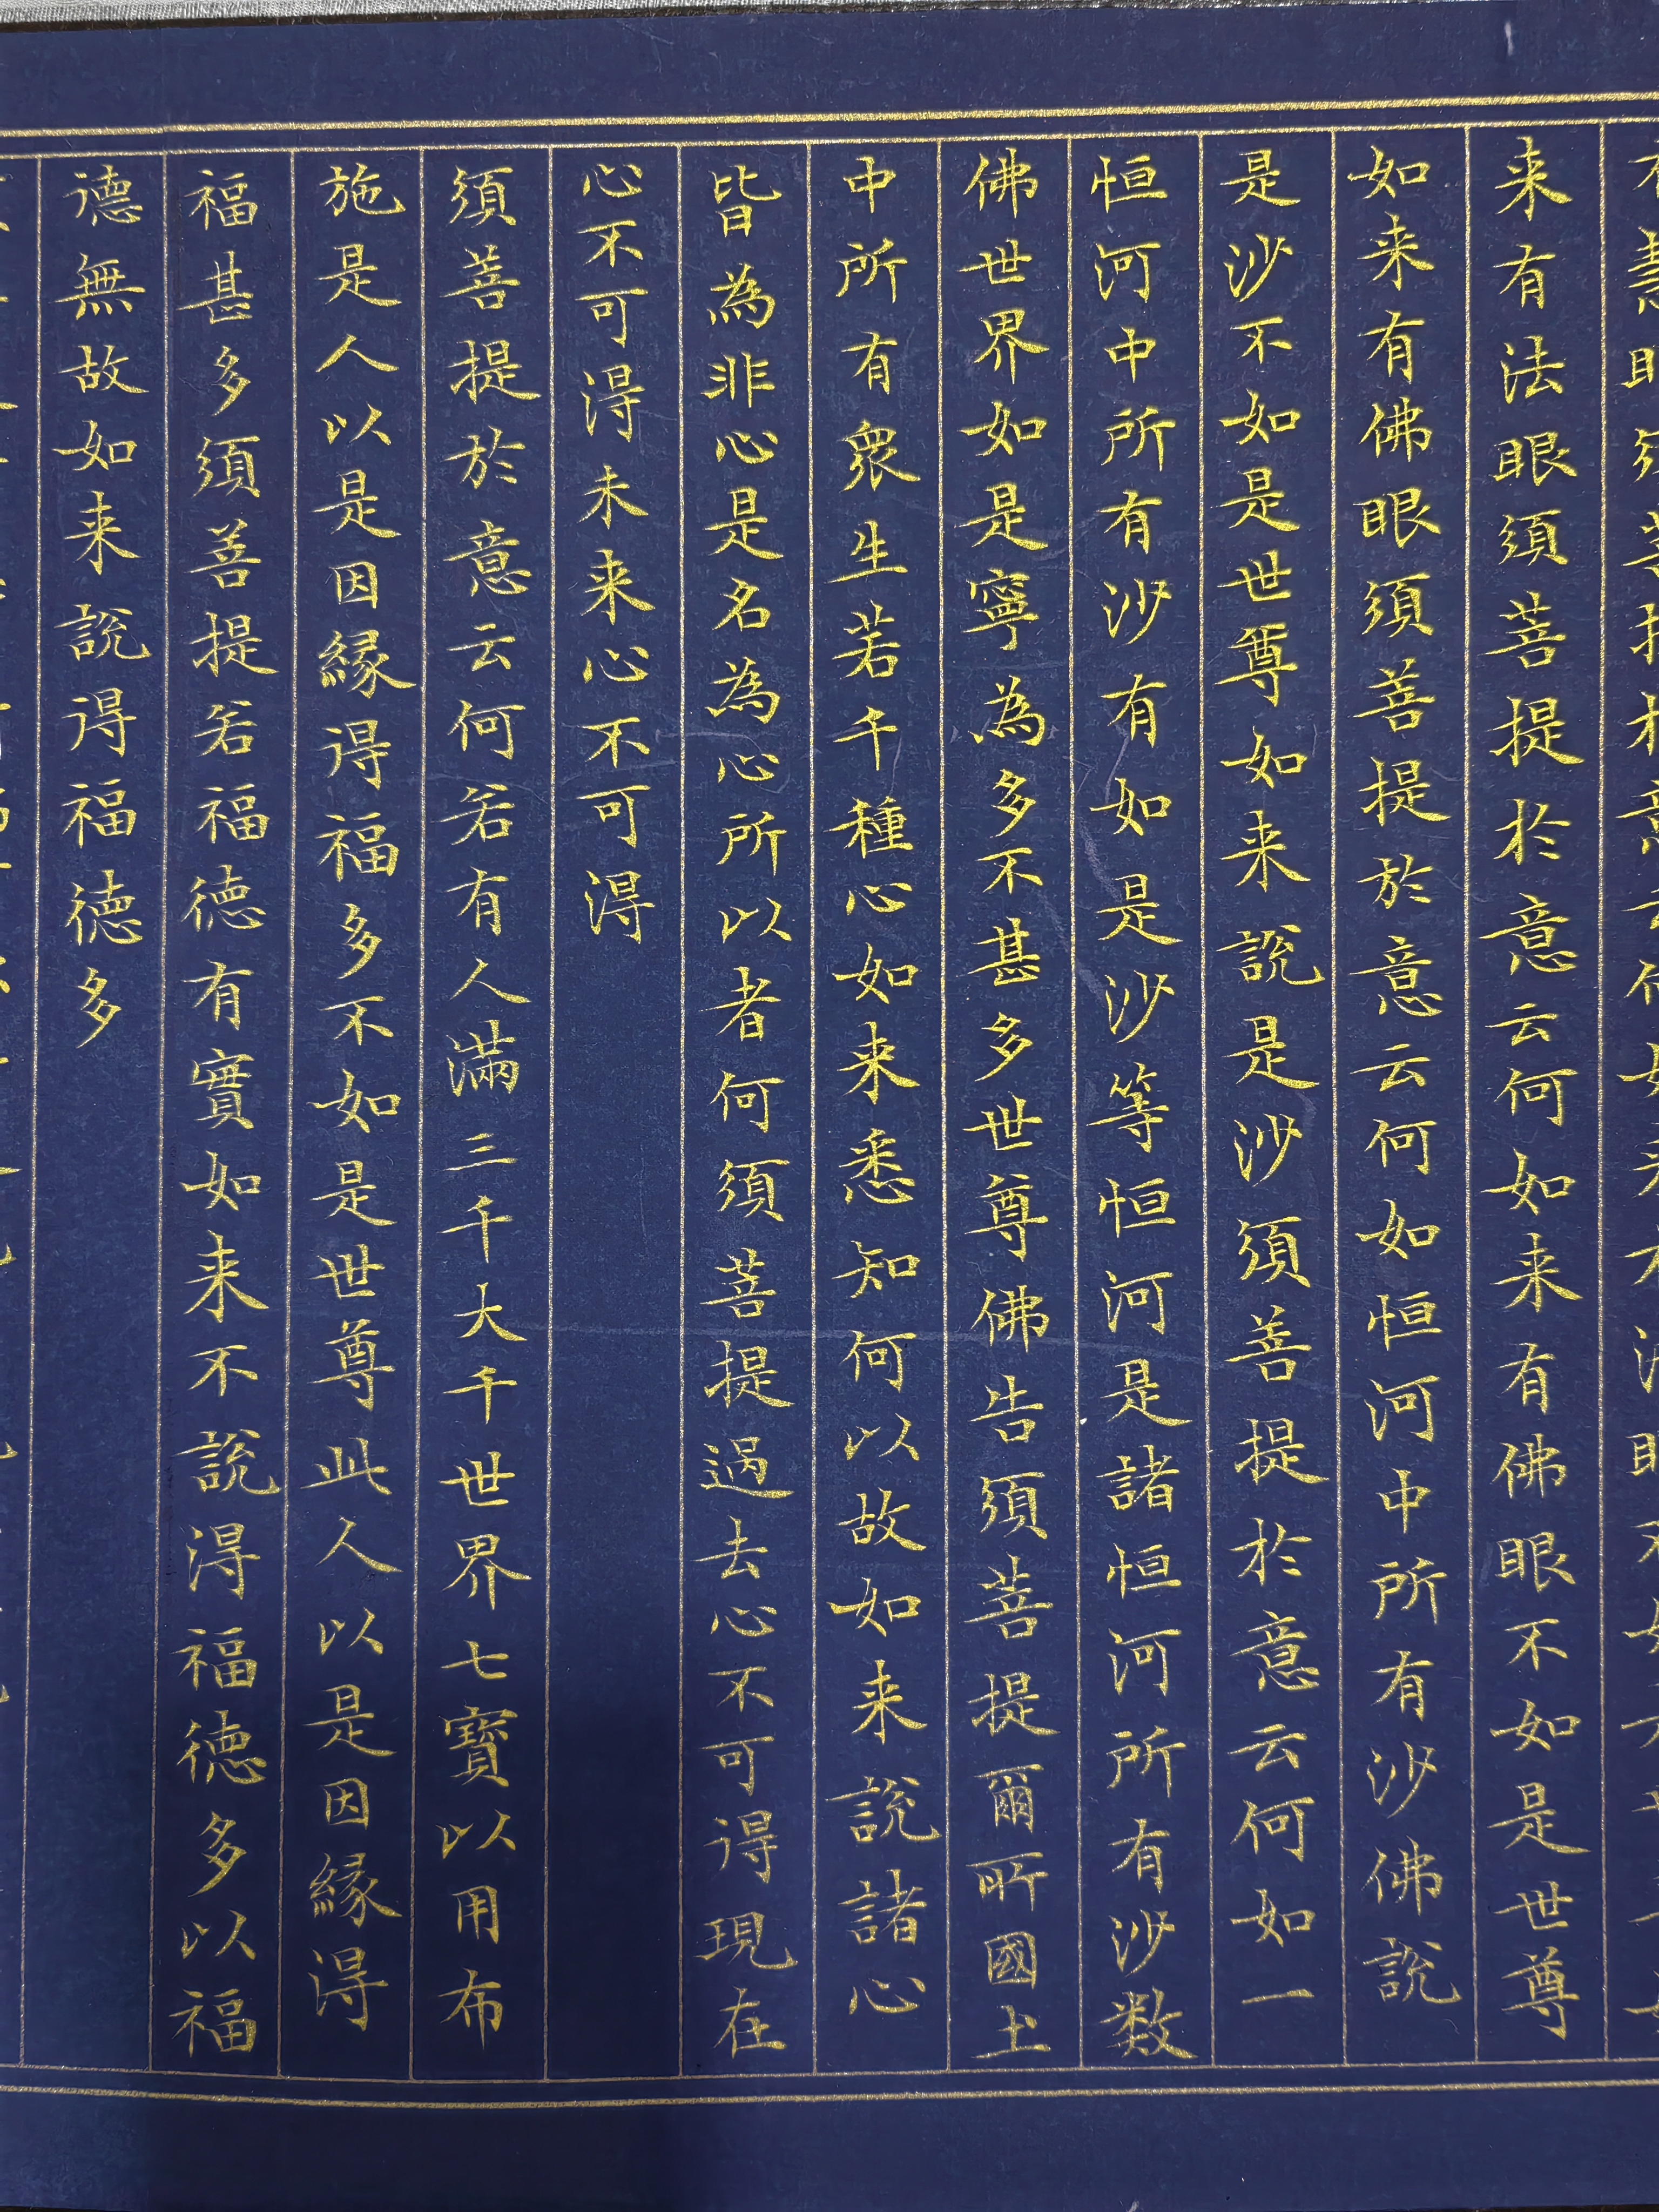 来有法眼須菩提於意云何如来有佛眼不如是世尊
如来有佛眼須菩提於意云何如恒河中所有沙佛說
是沙不如是世尊如来說是沙須菩提於意云何如一
恒河中所有沙有如是沙等恒河是諸恒河所有沙数
佛世界如是寧為多不甚多世尊佛告須菩提爾所國土
中所有衆生若千種心如来悉知何以故如来說諸心
皆為非心是名為心所以者何須菩提過去心不可得現在
心不可得未来心不可得
須菩提於意云何若有人滿三千大千世界七寶以用布
施是人以是因緣得福多不如是世尊此人以是因緣得
福甚多須菩提若福德有實如来不說得福德多以福
德無故如来說得福德多